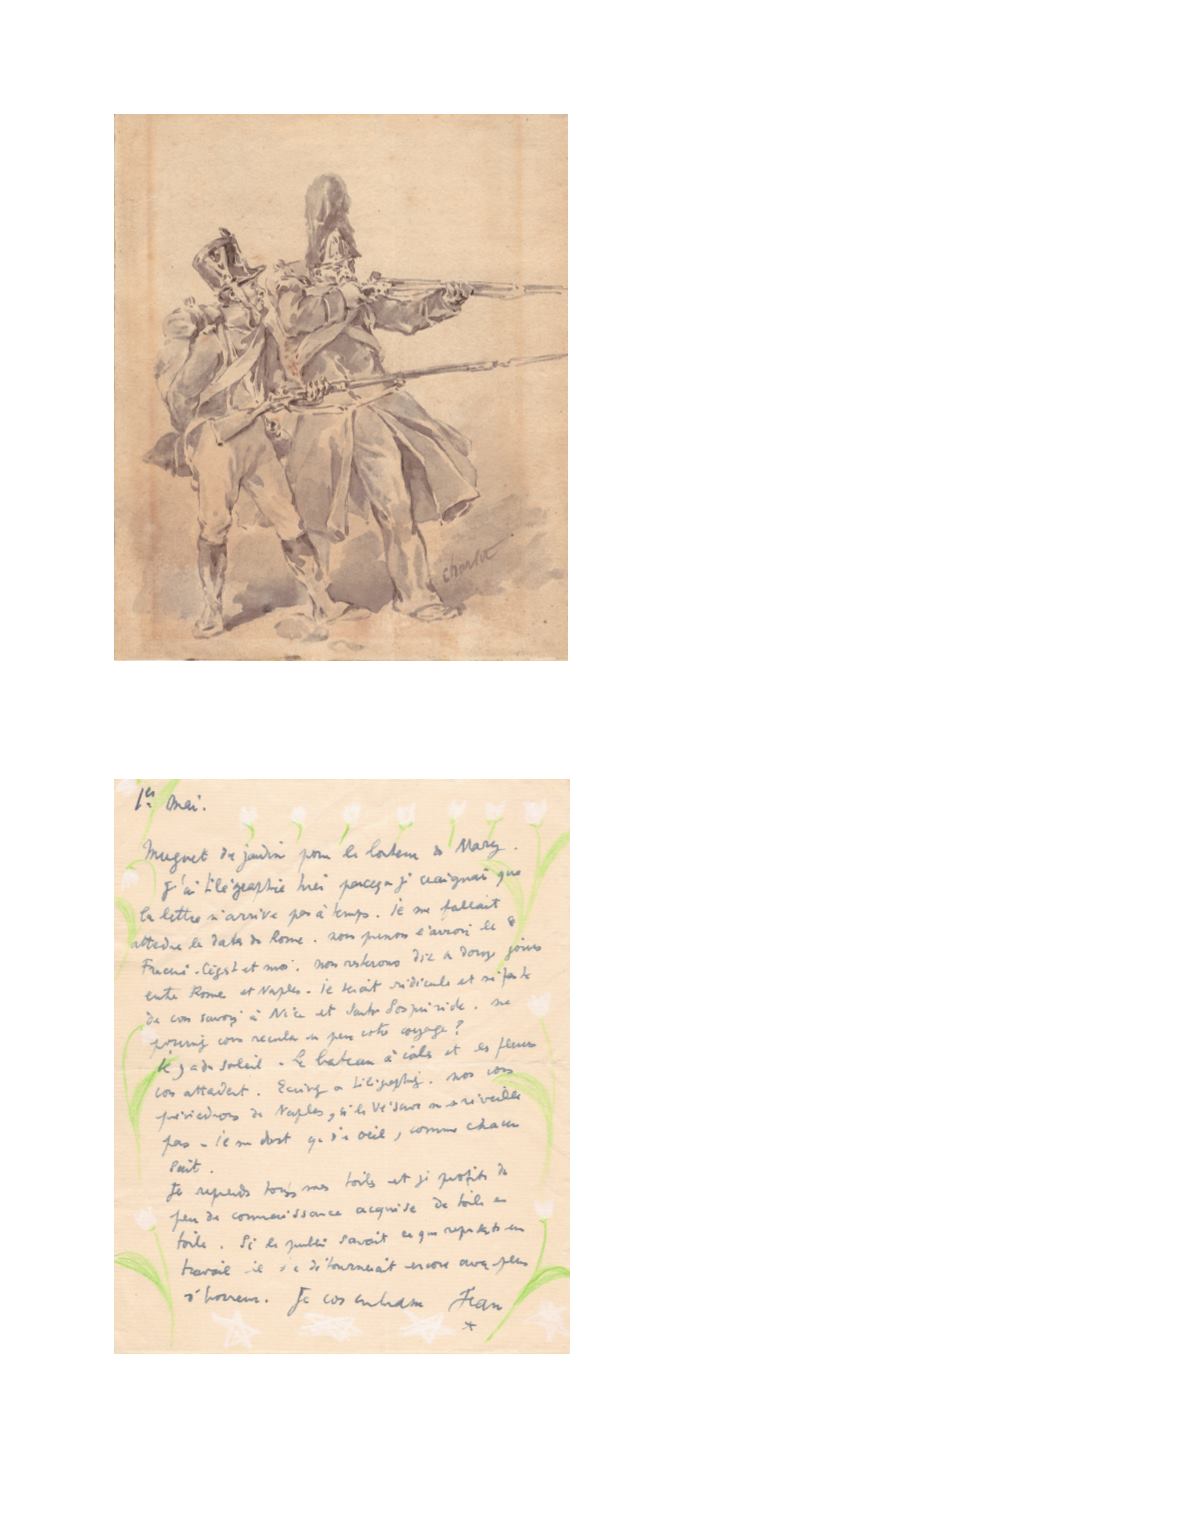 charlet
1er Mai.
Muguet du jardin pour le bonheur de Mary.
J'ai télégraphié hier parce que je craignais que
la lettre n'arrive pas à temps. Il me fallait
attendre la date de Rome. nous prenons l'avion le 8
Francine - Cégeste et moi. nous resterons dix à douze jours
entre Rome et Naples. Il serait ridicule et néfaste
de vous savoir à Nice et Santo Sospir vide. ne
pourriez vous reculer un peu votre voyage ?
Il y a du soleil - Le bateau à voiles et les fleurs
vous attendent. Ecrivez ou télégraphiez. nous vous
de Naples, si le Vésuve ne se réveille
pas - Il ne dort que d'un oeil, comme chacun
sait.
Je reprends toutes mes toiles et je profite du
peu de connaissance acquise de toile en
toile. Si le public savait ce que représente un
travail il s'en détournerait encore avec plus
d'horreur. Je vous embrasse Jean
*